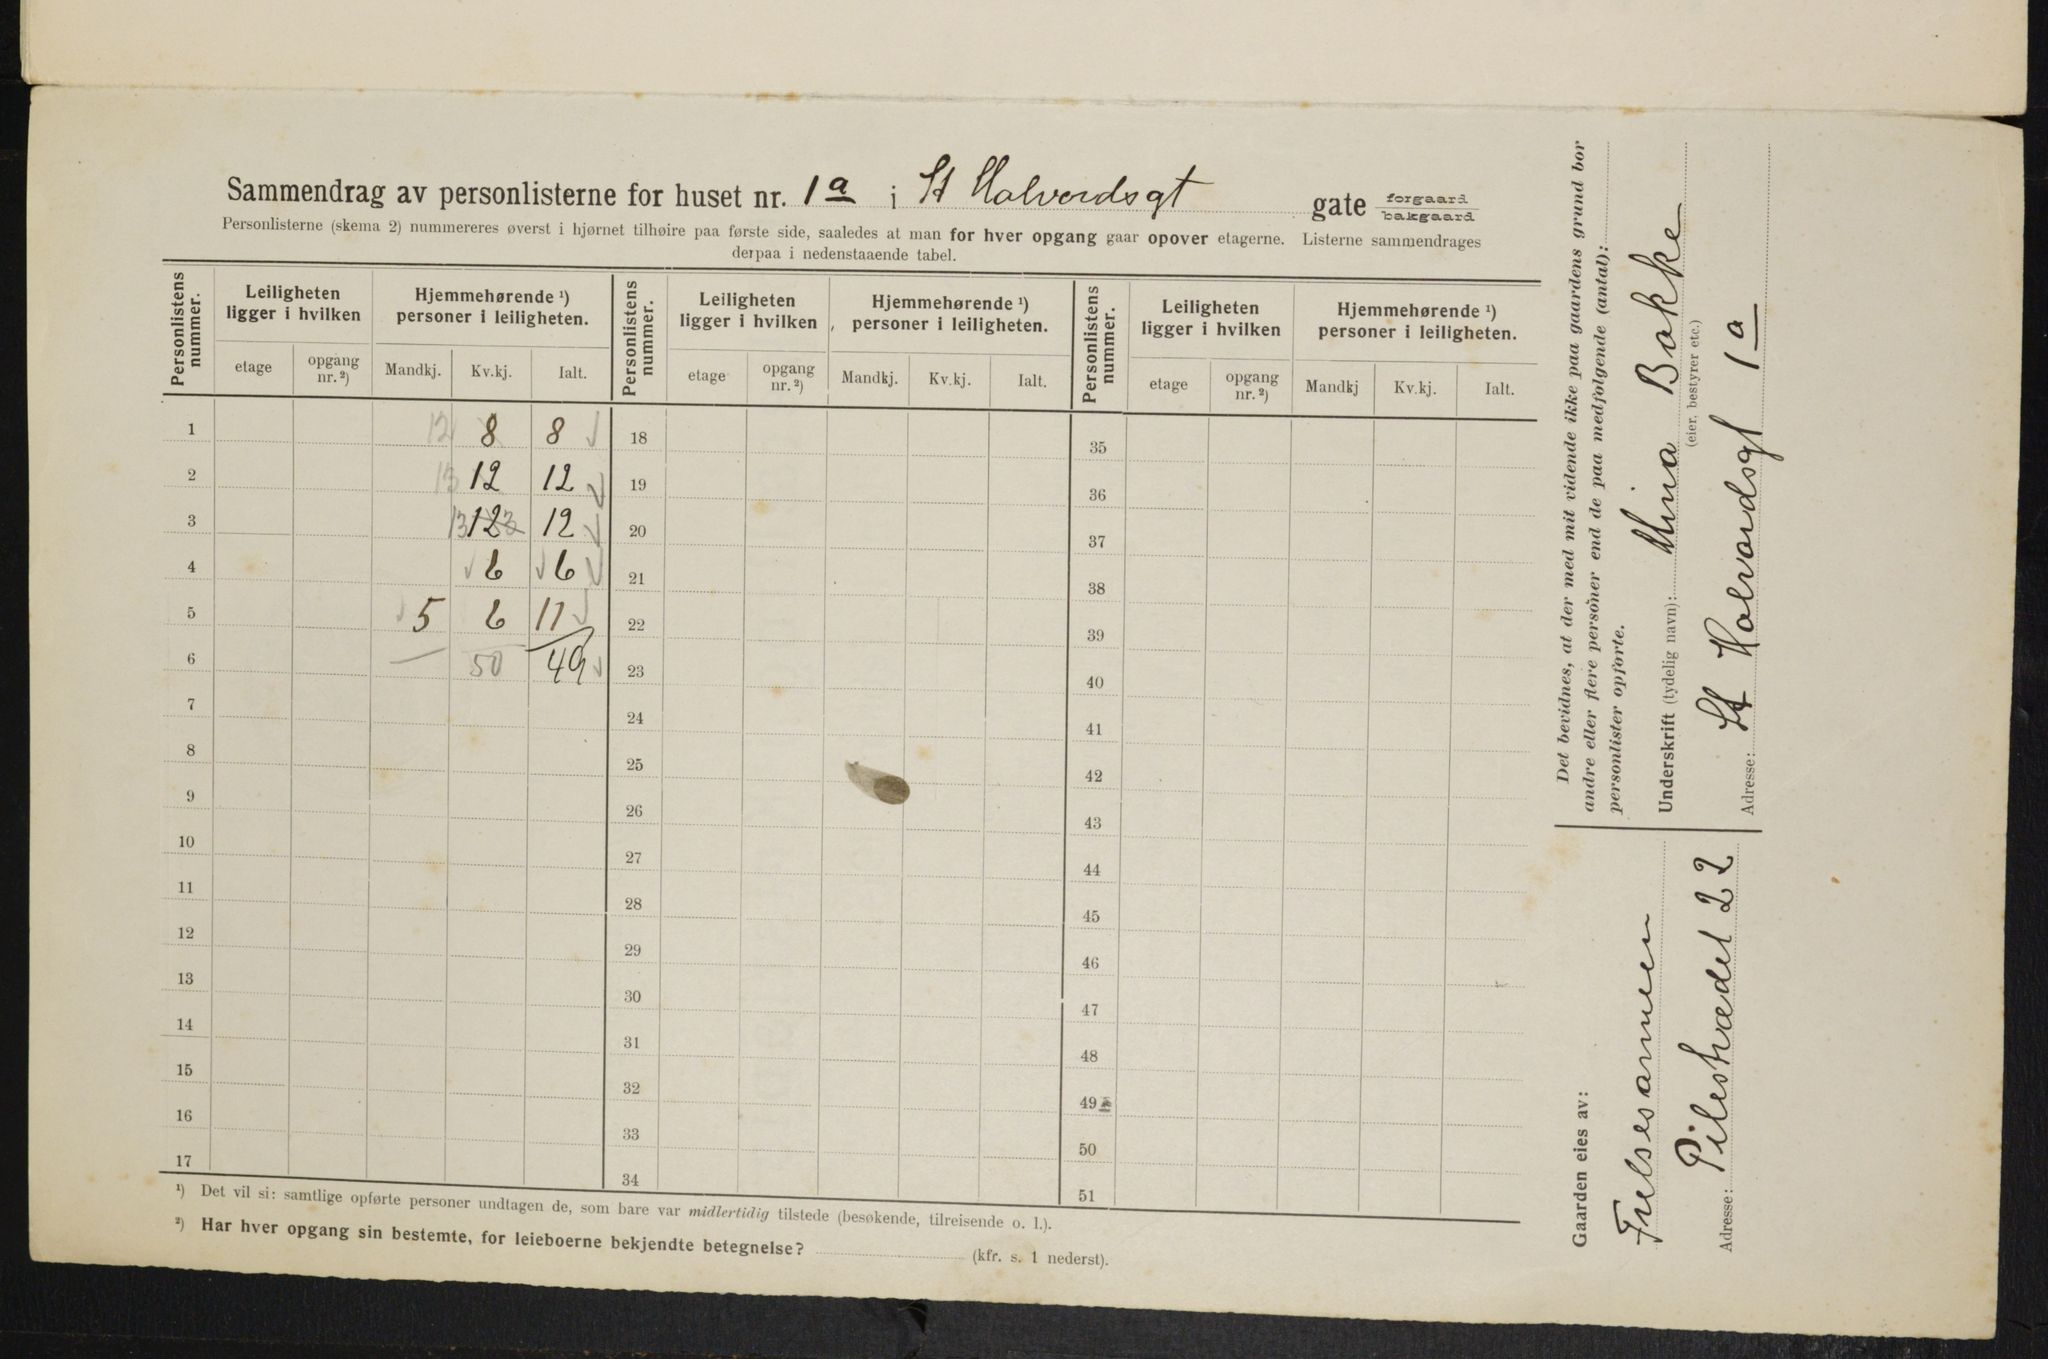 Sammendrag av personlisterne for huset nr. 1a i St Halvordsgt gate forgaard bakgaard
Personlisterne (skema 2) nummereres øverst i hjørnet tilhøire paa første side, saaledes at man for hver opgang gaar opover etagerne. Listerne sammendrages
derpaa i nedenstaaende tabel.
Personlistens nummer. Leiligheten ligger i hvilken Hjemmehørende ¹) personer i leiligheten. Personlistens nummer. Leiligheten ligger i hvilken Hjemmehørende ¹) personer i leiligheten. Personlistens nummer. Leiligheten ligger i hvilken Hjemmehørende ¹) personer i leiligheten.
etage opgang nr. ²) Mandkj. Kv.kj. Ialt. etage opgang nr. ²) Mandkj. Kv.kj. Ialt. etage opgang nr. ²) Mandkj Kv.kj. Ialt.
1 12 8 8 18 35
2 13 12 12 19 36
3 13 12 12 20 37
4 6 6 21 38
5 5 6 11 22 39
6 50 49 23 40
7 24 41
8 25 42
9 26 43
10 27 44
11 28 45
12 29 46
13 30 47
14 31 48
15 32 49
16 33 50
17 34 51
¹) Det vil si: samtlige opførte personer undtagen de, som bare var midlertidig tilstede (besøkende, tilreisende o. l.).
²) Har hver opgang sin bestemte, for leieboerne bekjendte betegnelse? (kfr. s. 1 nederst).
Det bevidnes, at der med mit vidende ikke paa gaardens grund bor
andre eller flere personer end de paa medfølgende (antal):
personlister opførte.
Underskrift (tydelig navn): Mina Bakke
(eier, bestyrer etc.)
Adresse: St Halvordsgt 1a
Gaarden eies av:
Frelsesarmeen
Adresse: Pilestrædet 22